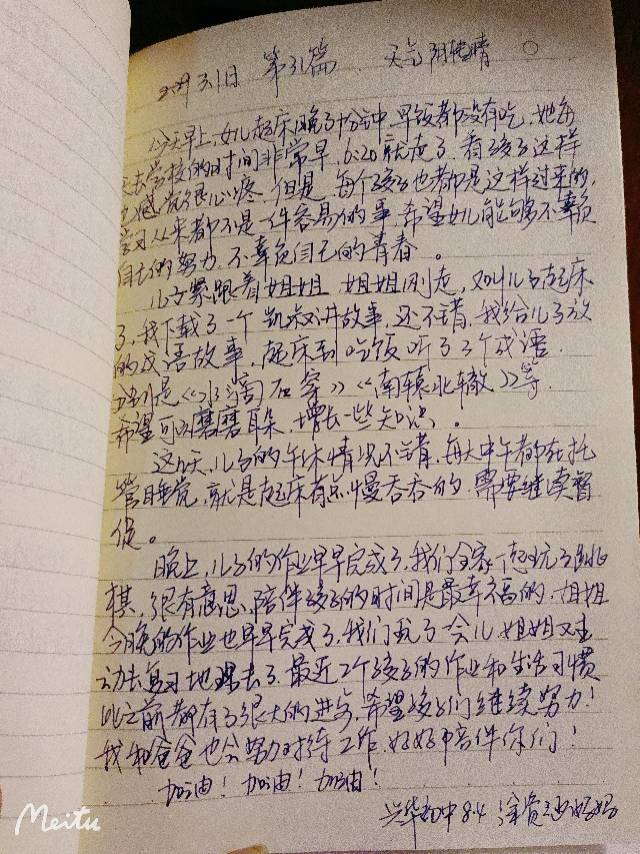 3.1日 第31篇 天气 阴转晴
今天早上,女儿起床晚了十分钟,早饭都没有吃,她每
天去学校的时间非常早,6:20就走了.看孩子这样
感觉很心疼.但是,每个孩子也都是这样过来的,
学习从来都不是一件容易的事,希望女儿能够不辜负
自己的努力,不辜负自己的青春。
儿子紧跟着姐姐,姐姐刚走,就叫儿子起床
了,我下载了一个凯叔讲故事,还不错,我给儿子放
的成语故事,起床到吃饭听了3个成语.
分别是《水滴石穿》《南辕北辙》等.
希望可以磨磨耳朵,增长一些知识。
这几天,儿子的午休情况不错,每天中午都在托
管睡觉,就是起床有点慢吞吞的,需要继续督
促。
晚上,儿子的作业早早完成了,我们全家一起玩了跳
棋,很有意思,陪伴孩子的时间是最幸福的,姐姐
今晚的作业也早早完成了,我们玩了会儿,姐姐又主
动去复习地理去了.最近2个孩子的作业和生活习惯
比之前都有了很大的进步,希望孩子们继续努力!
我和爸爸也会努力对待工作,好好陪伴你们!
加油!加油!加油!
兴华初中8.4 妈妈
Meitu